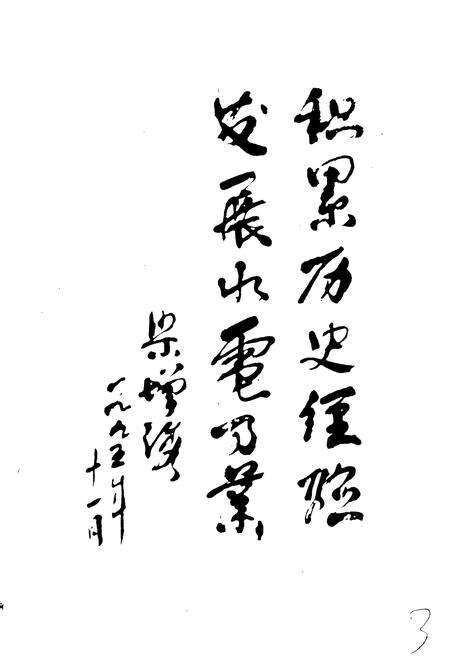 积累历史经验
发展水電事業
梁增
一九九五年
十一月
3